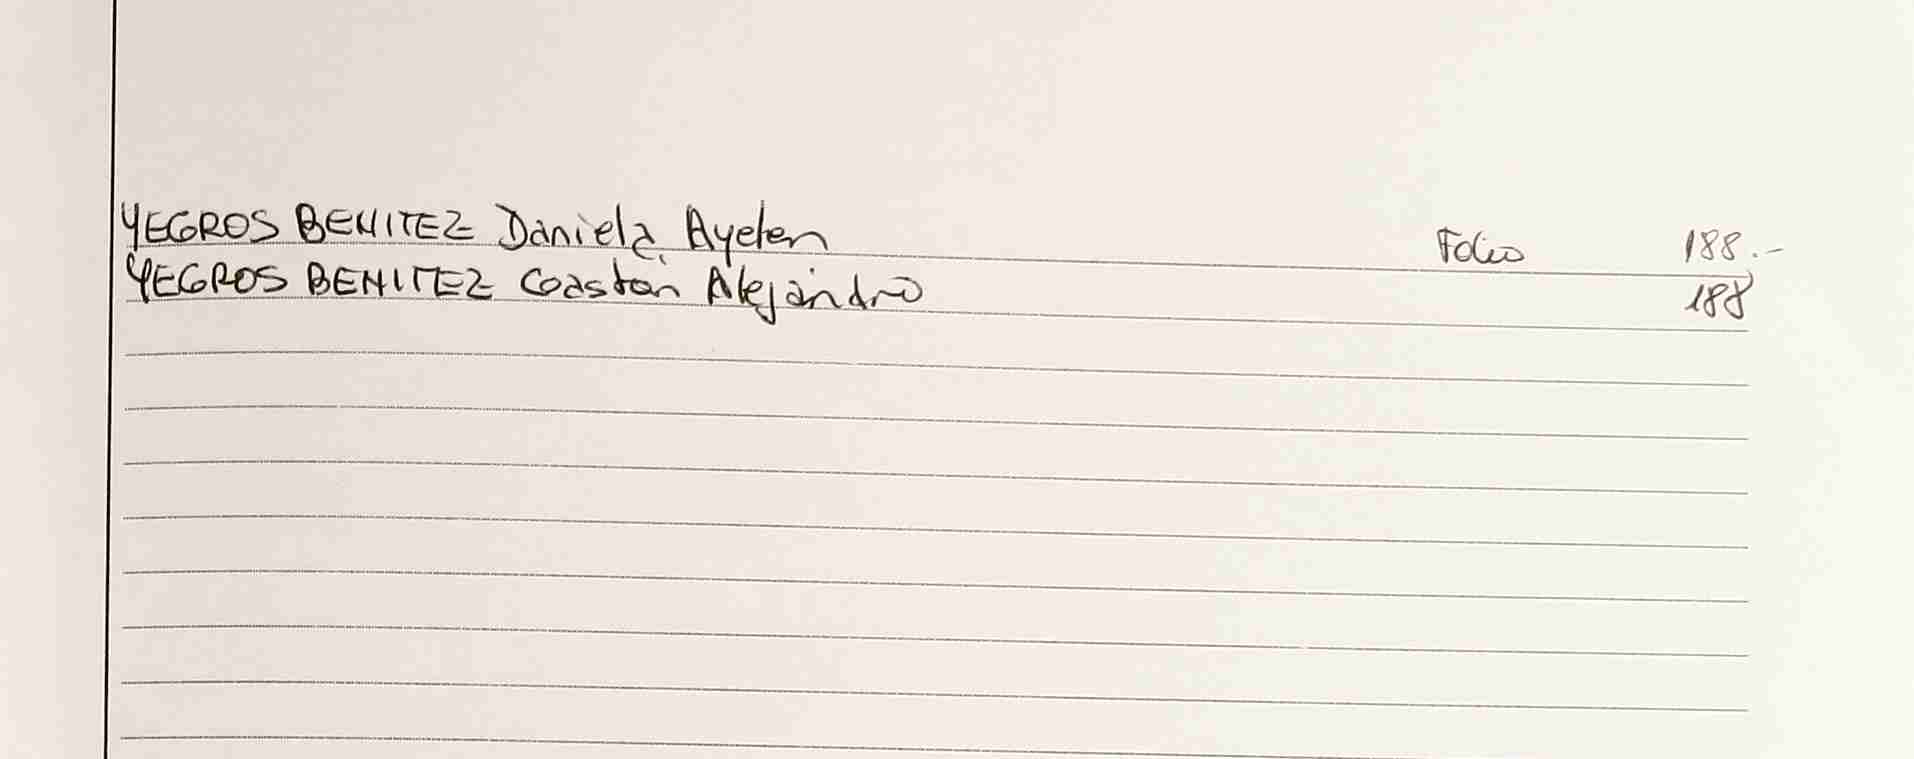 YEGROS BENITEZ Daniela Ayelen Folio 188.-
YEGROS BENITEZ Gastón Alejandro 188